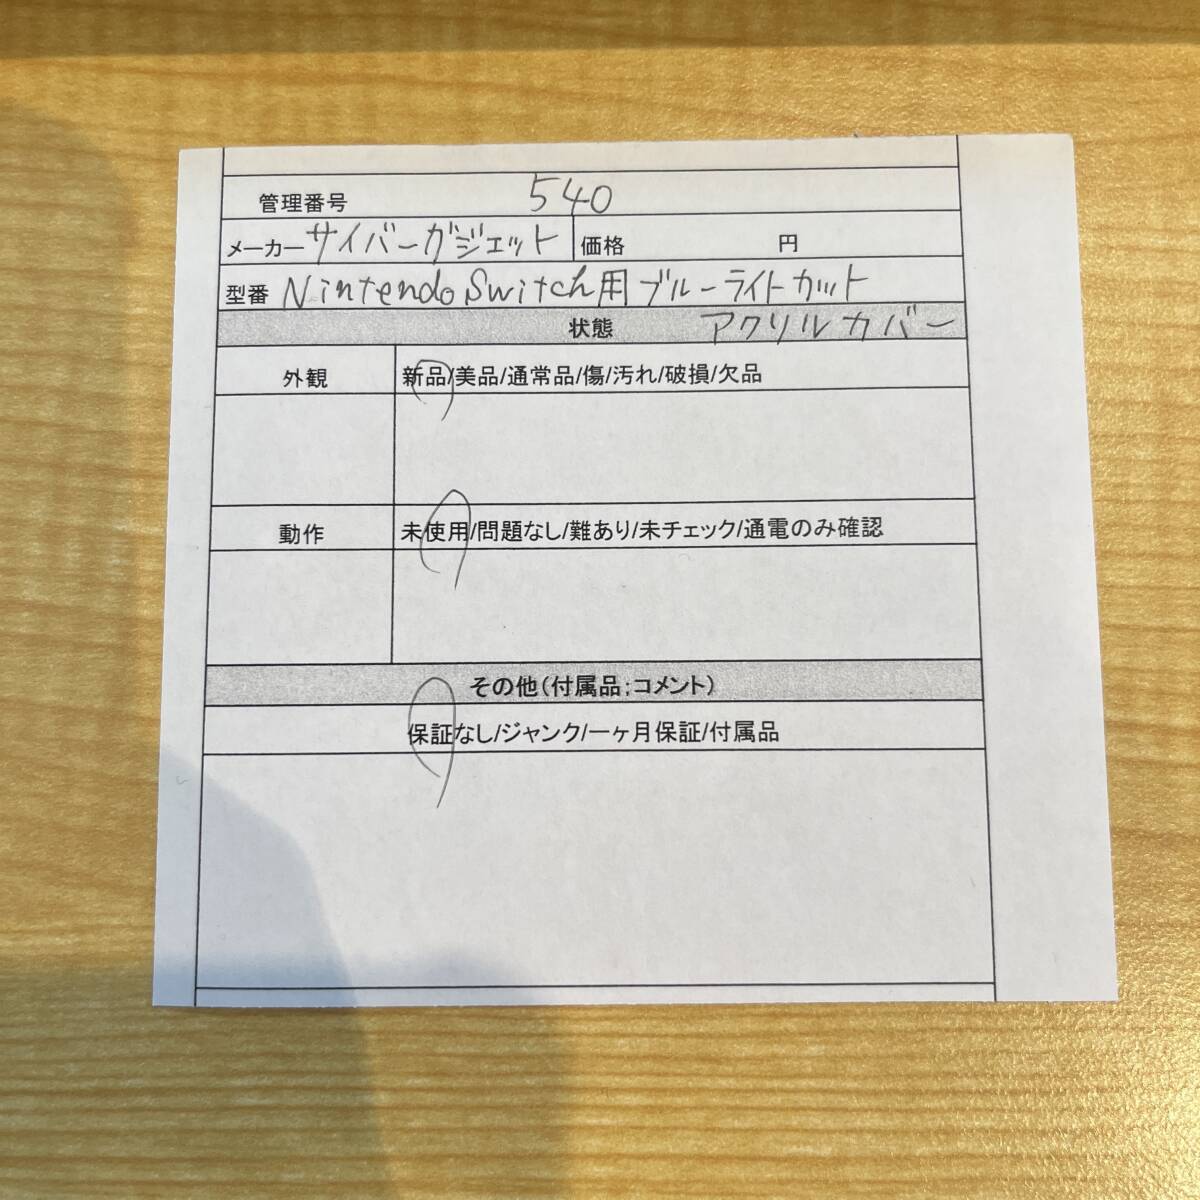 管理番号 540
メーカー サイバーガジェット 価格 円
型番 Nintendo Switch用 ブルーライトカット
状態 アクリルカバー
外観 新品/美品/通常品/傷/汚れ/破損/欠品
動作 未使用/問題なし/難あり/未チェック/通電のみ確認
その他(付属品;コメント)
保証なし/ジャンク/一ヶ月保証/付属品